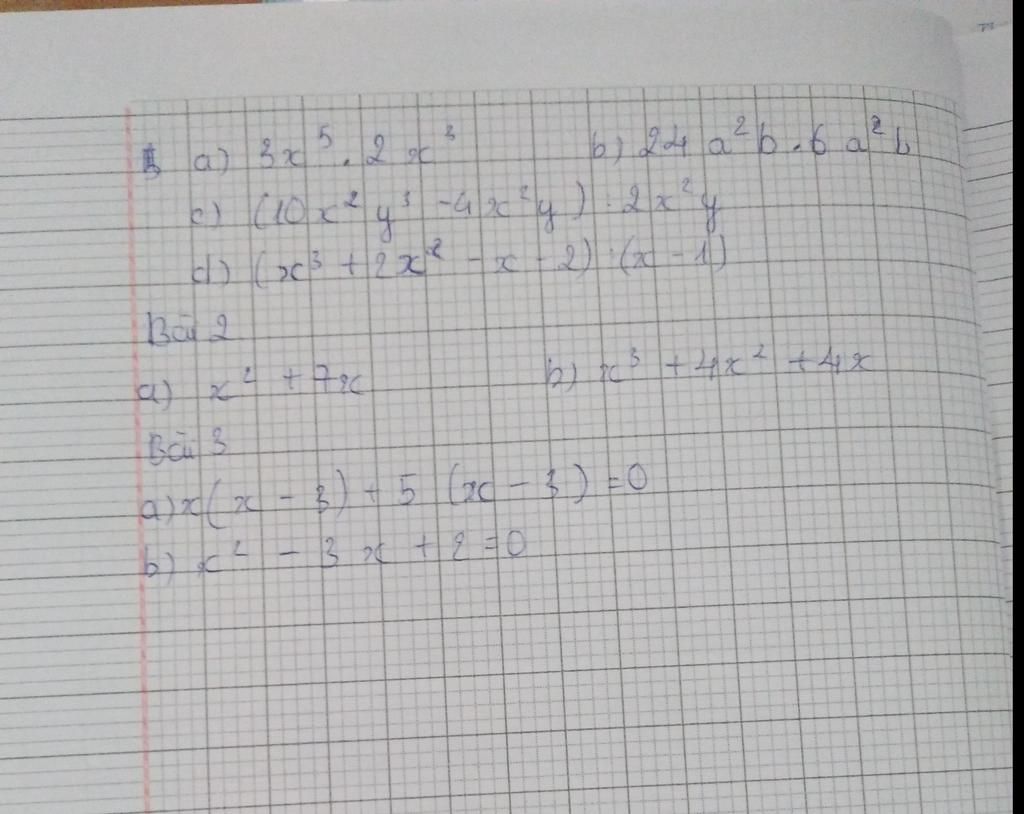 1 a) 3x⁵ . 2x³ b) 24 a²b . 6 a²b
c) (10x²y³ - 4x²y) : 2x²y
d) (x³ + 2x² - x - 2) : (x - 1)
Bài 2
a) x² + 7x b) x³ + 4x² + 4x
Bài 3
a) x(x - 3) + 5 (x - 3) = 0
b) x² - 3x + 2 = 0